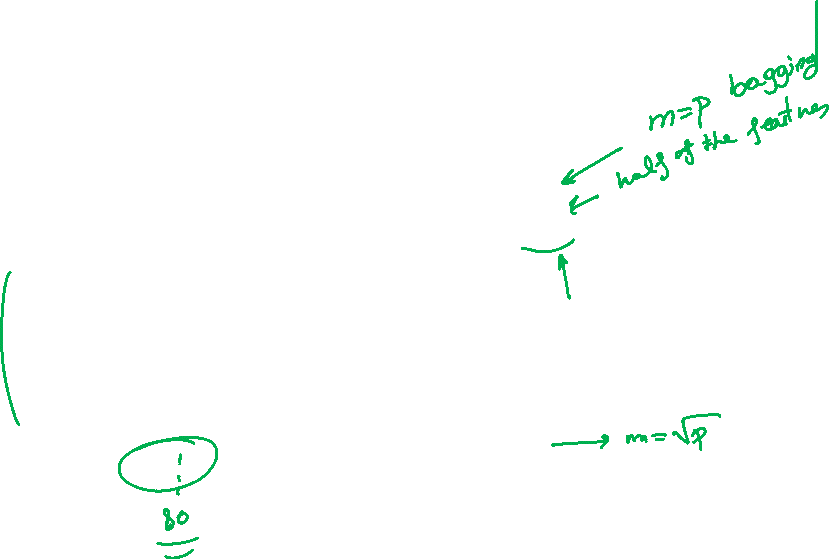 m=p bagging
half of the features
m=√p
80